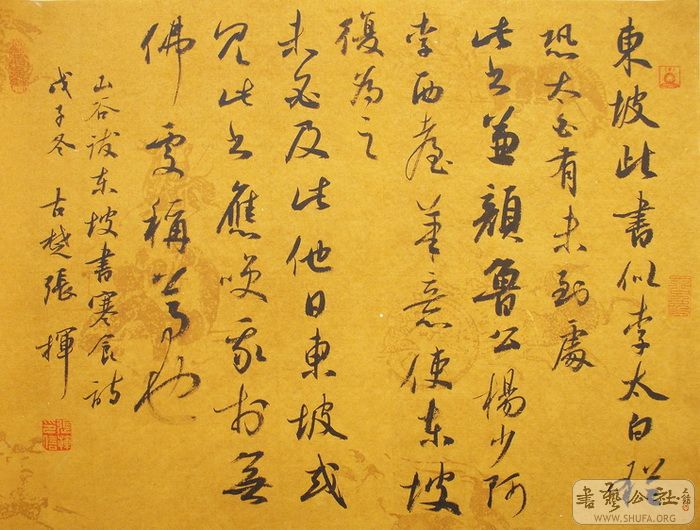 東坡此書似李太白猶
恐太白有未到處
此書兼顏魯公楊少師
李西臺筆意使東坡
復為之
未必及此他日東坡或
見此書應笑我於無
佛處稱尊也
山谷跋東坡書寒食詩
戊子冬 古楚張揮
書藝公社
WWW.SHUFA.ORG